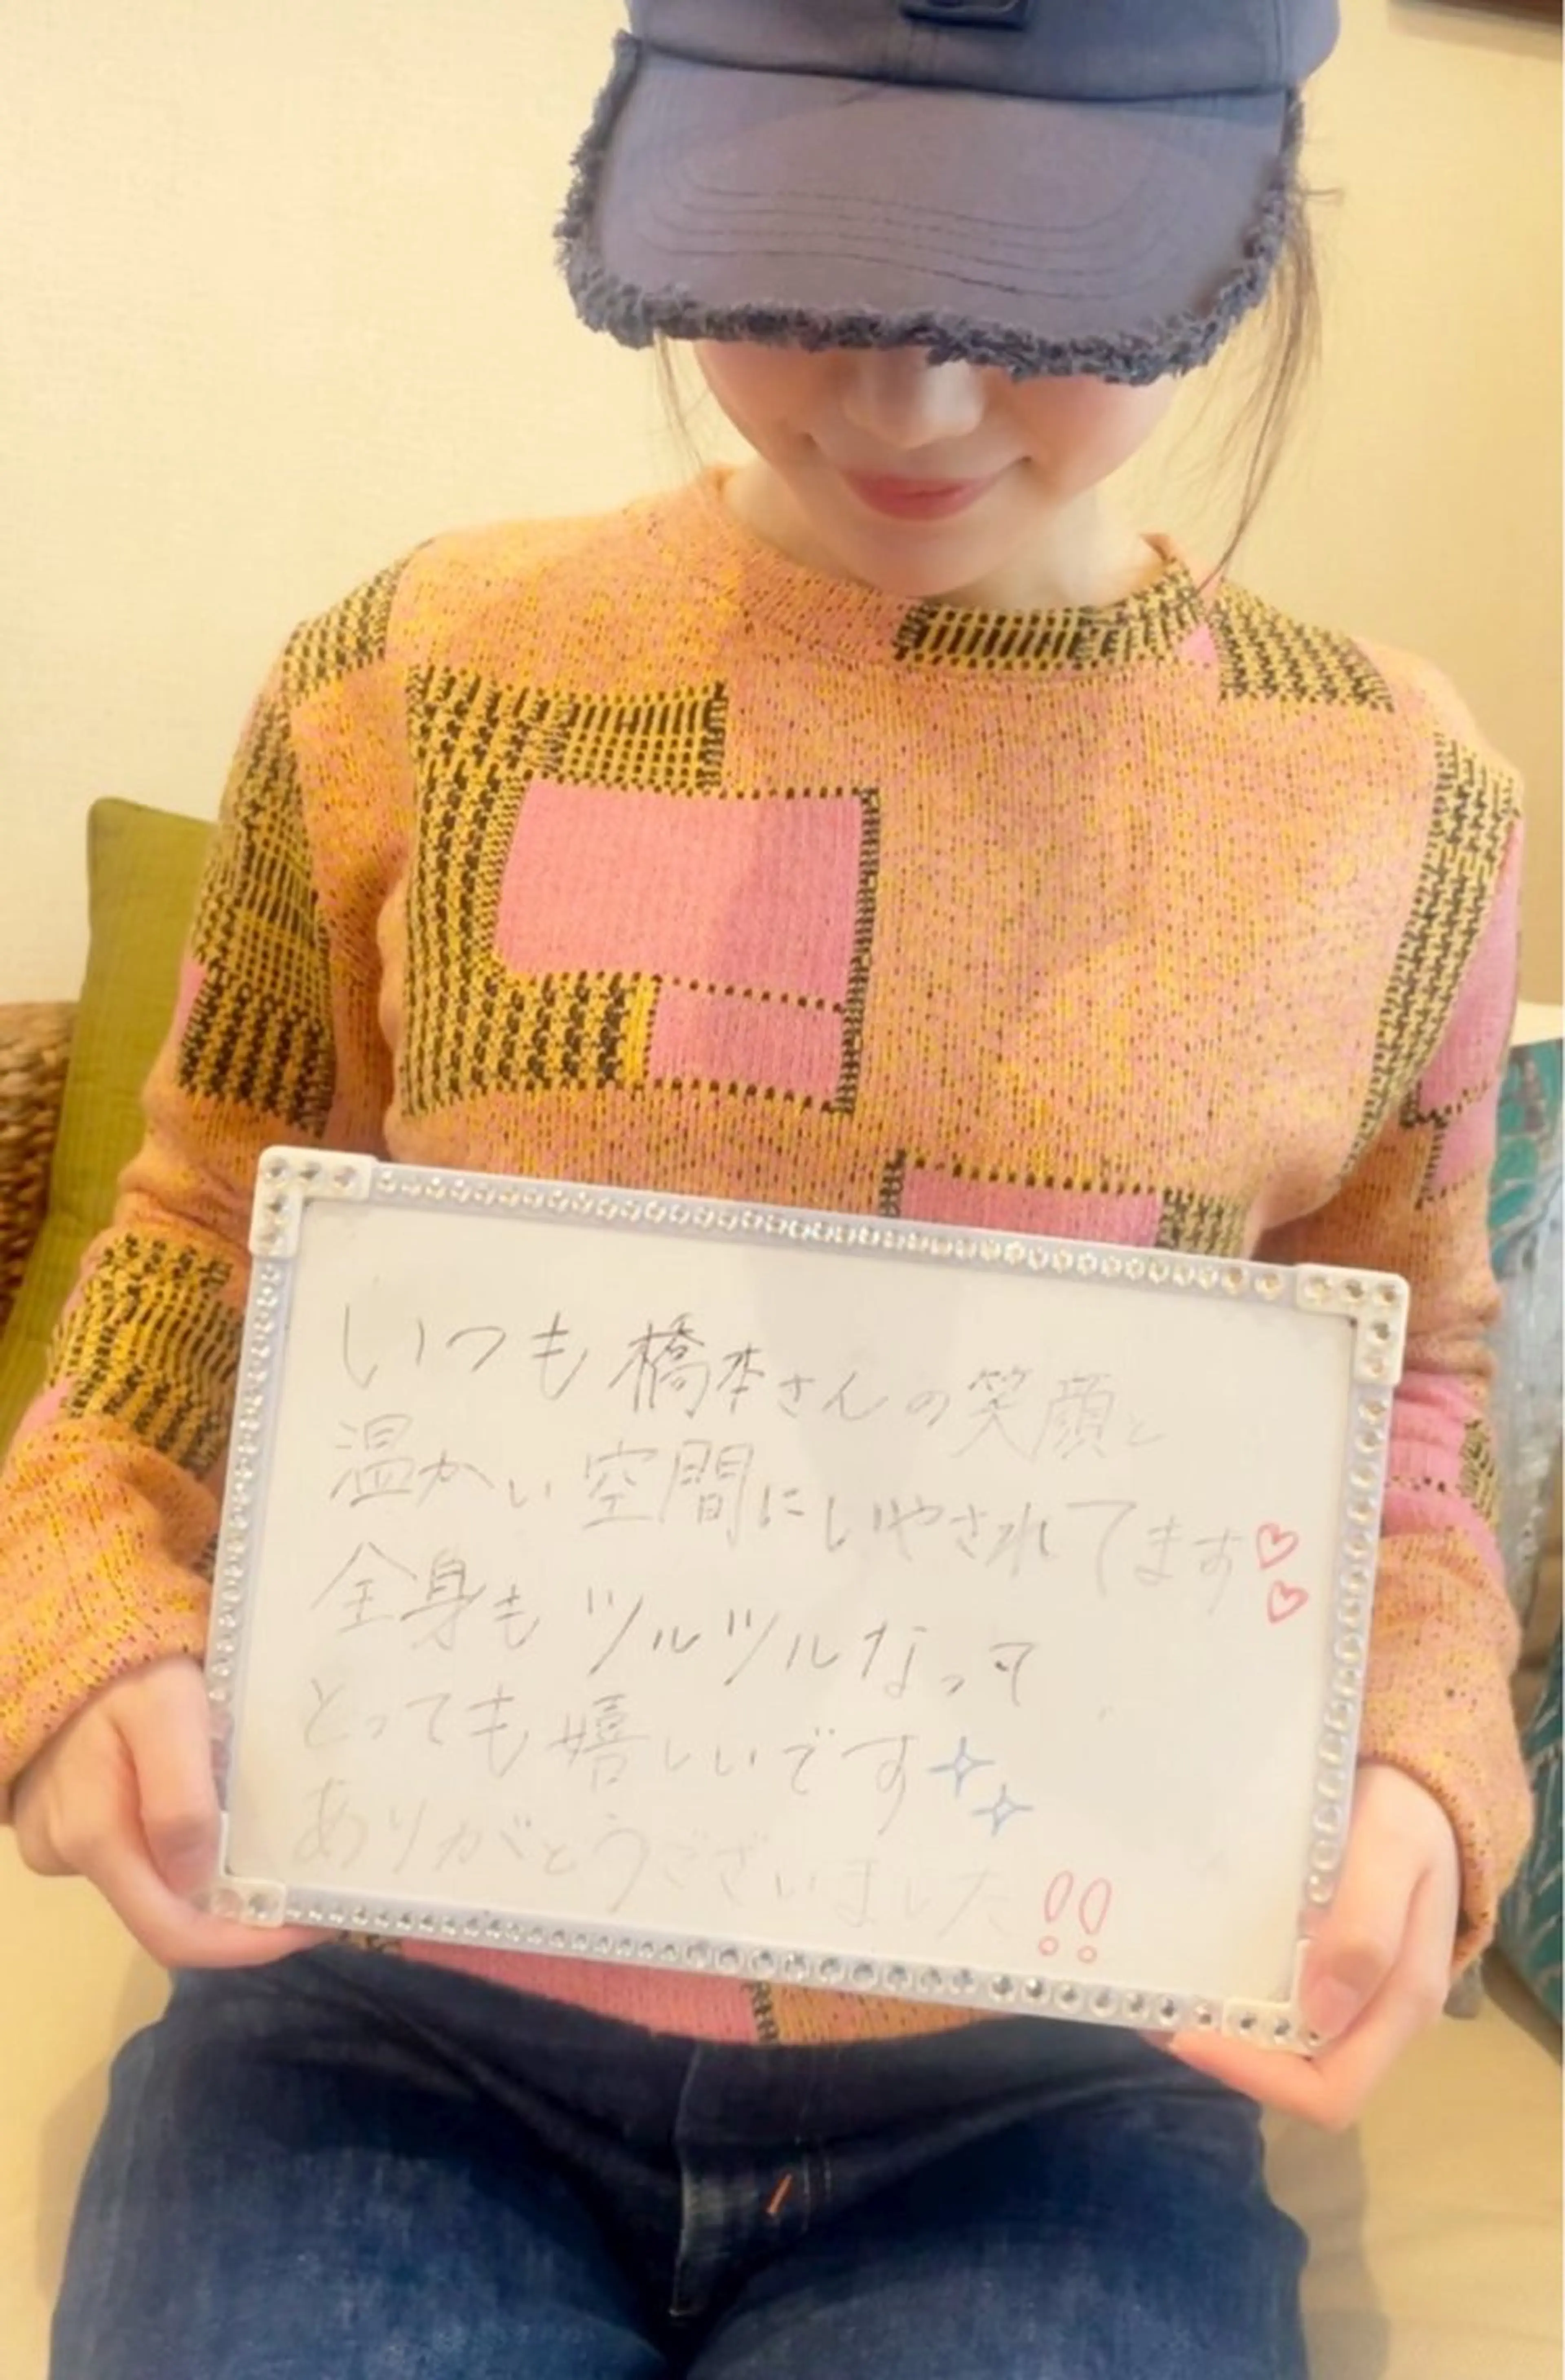 いつも橋本さんの笑顔と
温かい空間にいやされてます♡♡
全身もツルツルなって
とっても嬉しいです✧✧
ありがとうございました!!